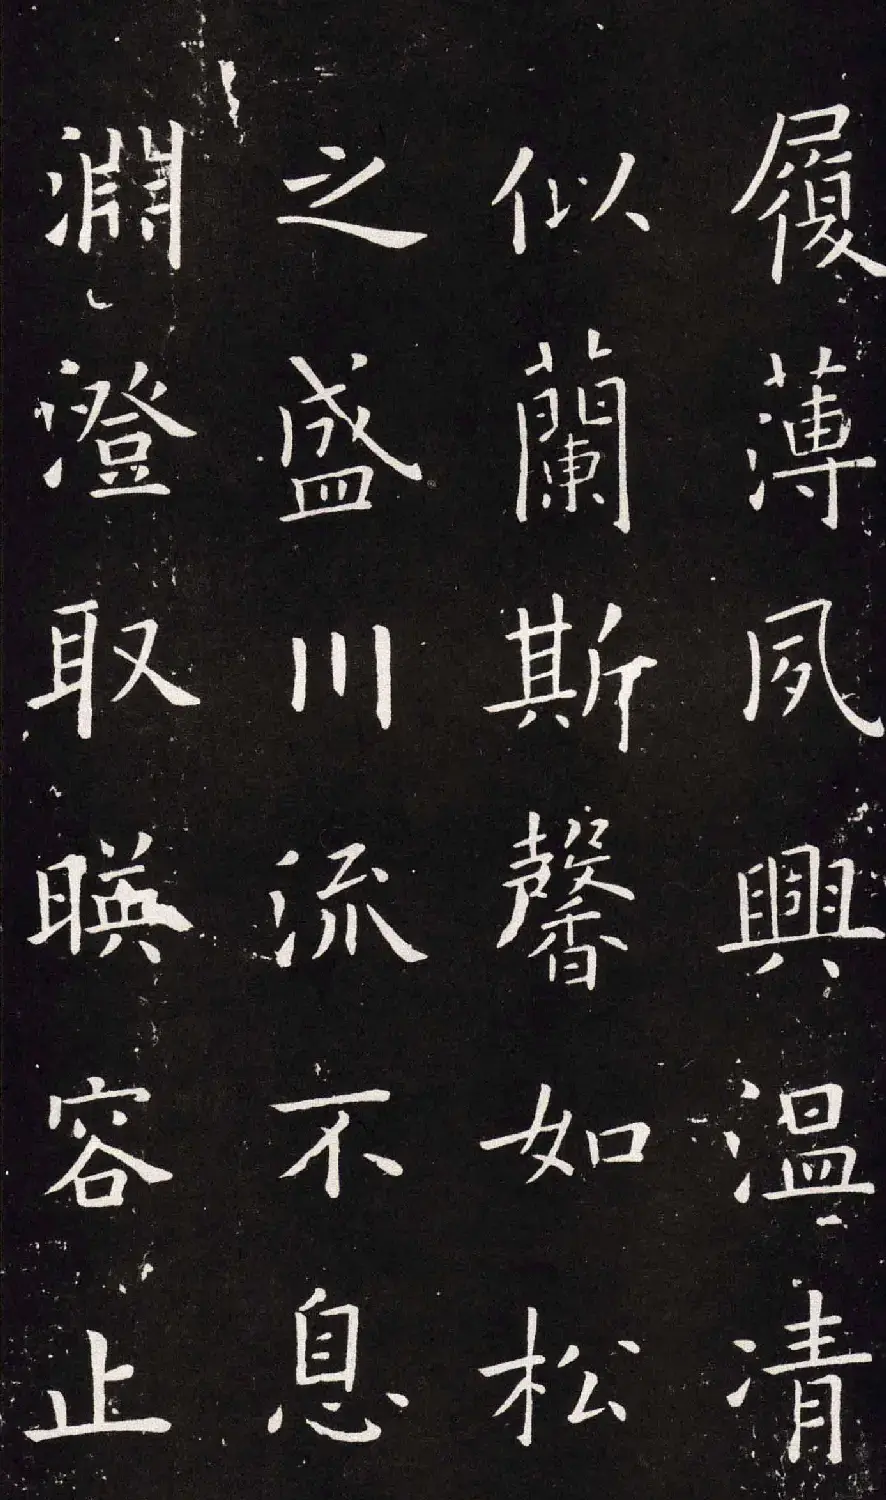 履薄夙興温凊
似蘭斯馨如松
之盛川流不息
淵澄取暎容止